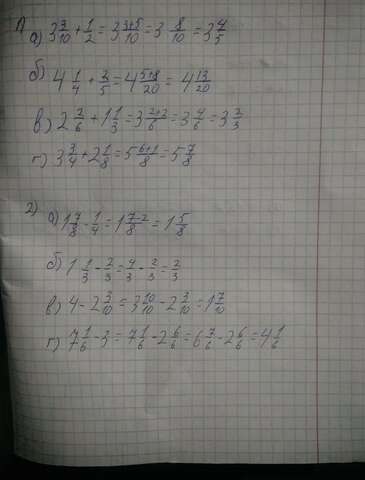 1)
а) 3 3/10 + 1/2 = 3 3+5/10 = 3 8/10 = 3 4/5
б) 4 1/4 + 2/5 = 4 5+8/20 = 4 13/20
в) 2 2/6 + 1 1/3 = 3 2+2/6 = 3 4/6 = 3 2/3
г) 3 3/4 + 2 1/8 = 5 6+1/8 = 5 7/8
2) а) 1 7/8 - 1/4 = 1 7-2/8 = 1 5/8
б) 1 1/3 - 2/3 = 4/3 - 2/3 = 2/3
в) 4 - 2 3/10 = 3 10/10 - 2 3/10 = 1 7/10
г) 7 1/6 - 3 = 7 1/6 - 2 6/6 = 6 7/6 - 2 6/6 = 4 1/6